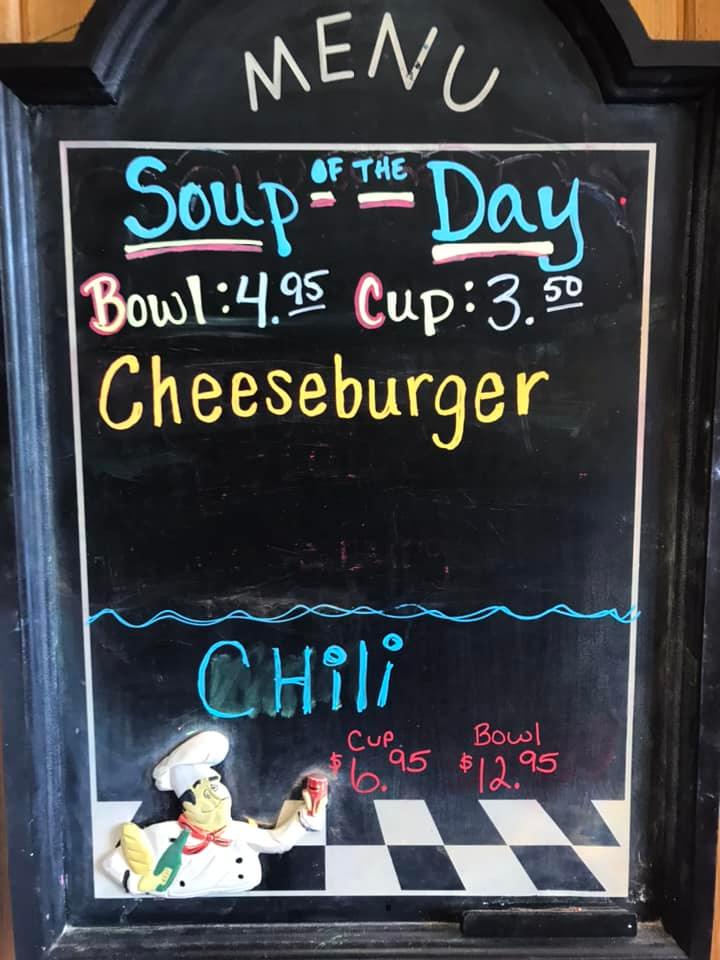 MENU
Soup OF THE Day
Bowl: 4.95 Cup: 3.50
Cheeseburger
CHili
Cup Bowl
$6.95 $12.95